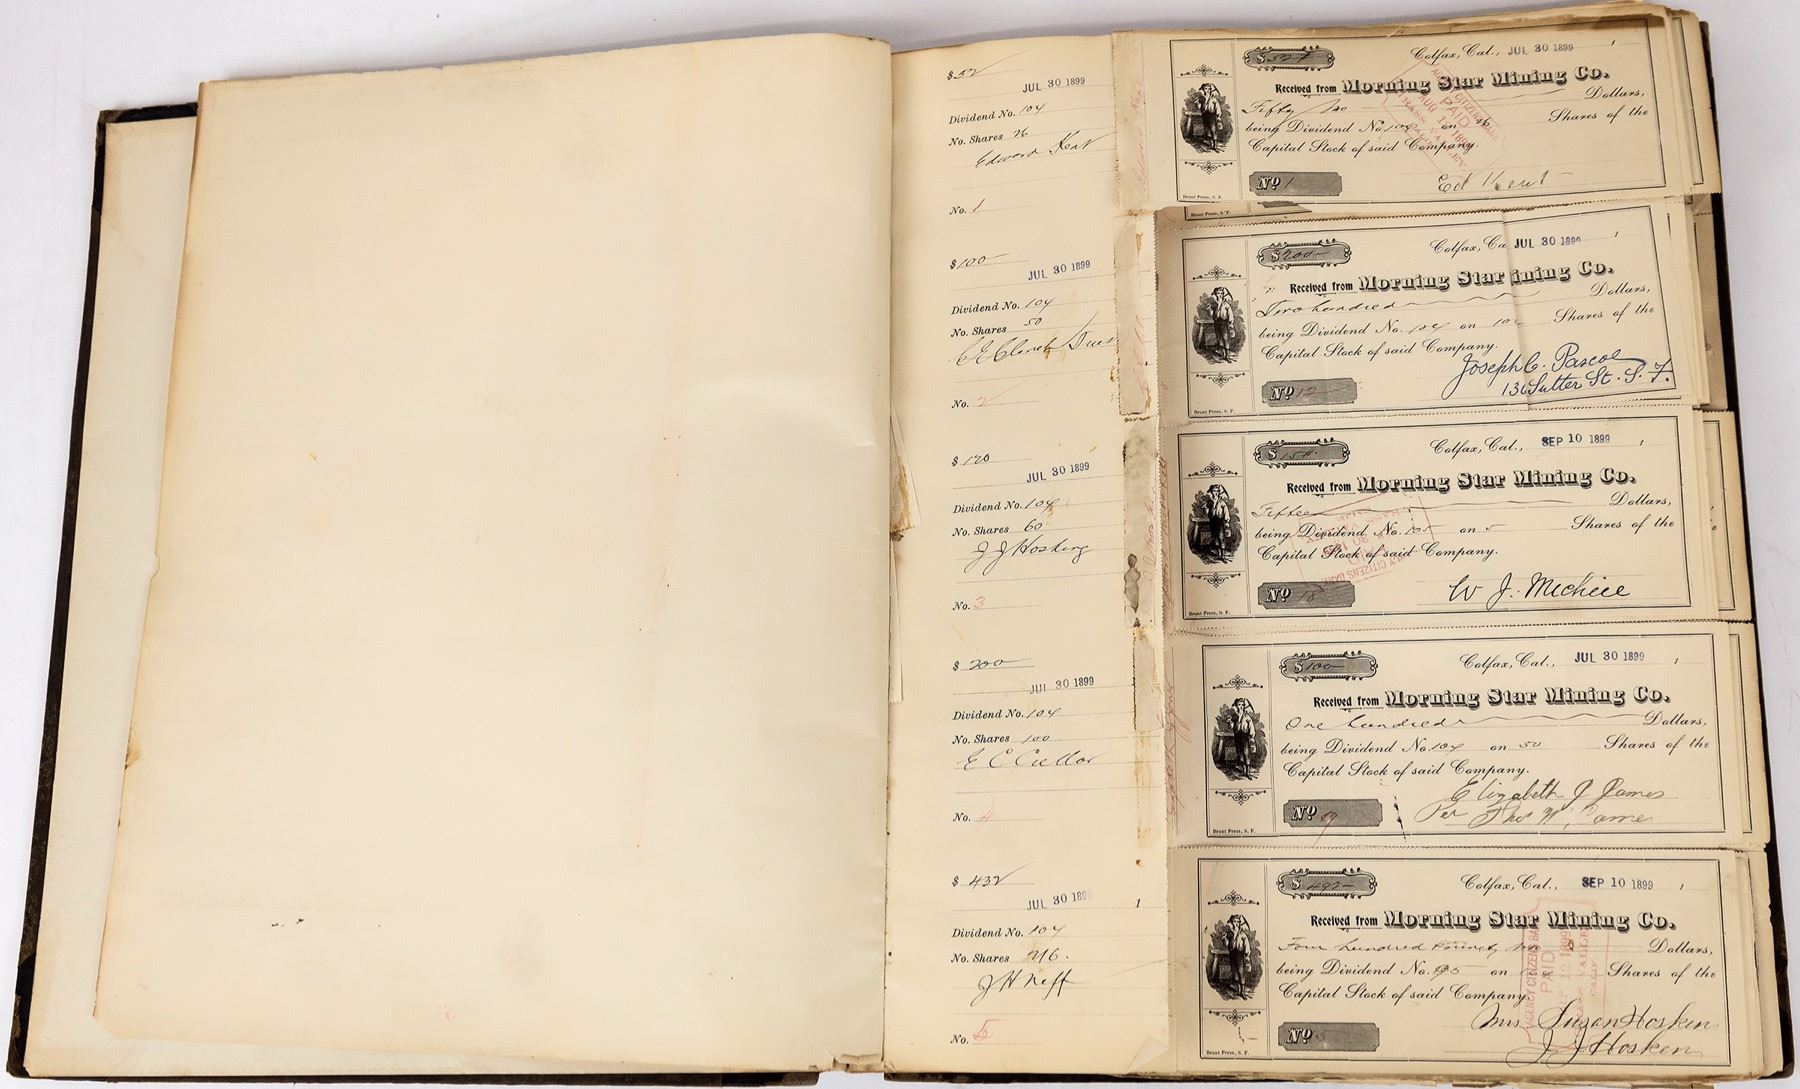 $52
JUL 30 1899
Dividend No. 104
No. Shares 26
Edward Kent
No. 1
$100
JUL 30 1899
Dividend No. 104
No. Shares 50
No. 2
$120
JUL 30 1899
Dividend No. 104
No. Shares 60
J J Hosking
No. 3
$200
JUL 30 1899
Dividend No. 104
No. Shares 100
E C
No. 4
$432
JUL 30 189
1
Dividend No. 104
No. Shares 216.
J H Neff
No. 5
$52
Colfax, Cal., JUL 30 1899 ,
Received from Morning Star Mining Co.
Fifty two Dollars,
being Dividend No. 104 on 26 Shares of the
Capital Stock of said Company.
No 1
Ed Kent
Brunt Press, S. F.
Brunt Press, S. F.
$200
Colfax, Ca JUL 30 1899 ,
Received from Morning Star ining Co.
Two hundred Dollars,
being Dividend No. 104 on 100 Shares of the
Capital Stock of said Company.
Joseph C. Pascoe
136 Sutter St. S. F.
No 12
Brunt Press, S. F.
$15
Colfax, Cal., SEP 10 1899 ,
Received from Morning Star Mining Co.
Fifteen Dollars,
being Dividend No. 105 on 5 Shares of the
Capital Stock of said Company.
No 18
W J.
Brunt Press, S. F.
$100
Colfax, Cal., JUL 30 1899 ,
Received from Morning Star Mining Co.
One hundred Dollars,
being Dividend No. 104 on 50 Shares of the
Capital Stock of said Company.
Elizabeth J James
Per Thos W. James
No 19
Brunt Press, S. F.
$492
Colfax, Cal., SEP 10 1899 ,
Received from Morning Star Mining Co.
Four hundred ninety two Dollars,
being Dividend No. 105 on Shares of the
Capital Stock of said Company.
Mrs Susan Hosken
J J Hosken
No 5
Brunt Press, S. F.
AGENCY CITIZENS BANK
PAID
SEP 12 1899